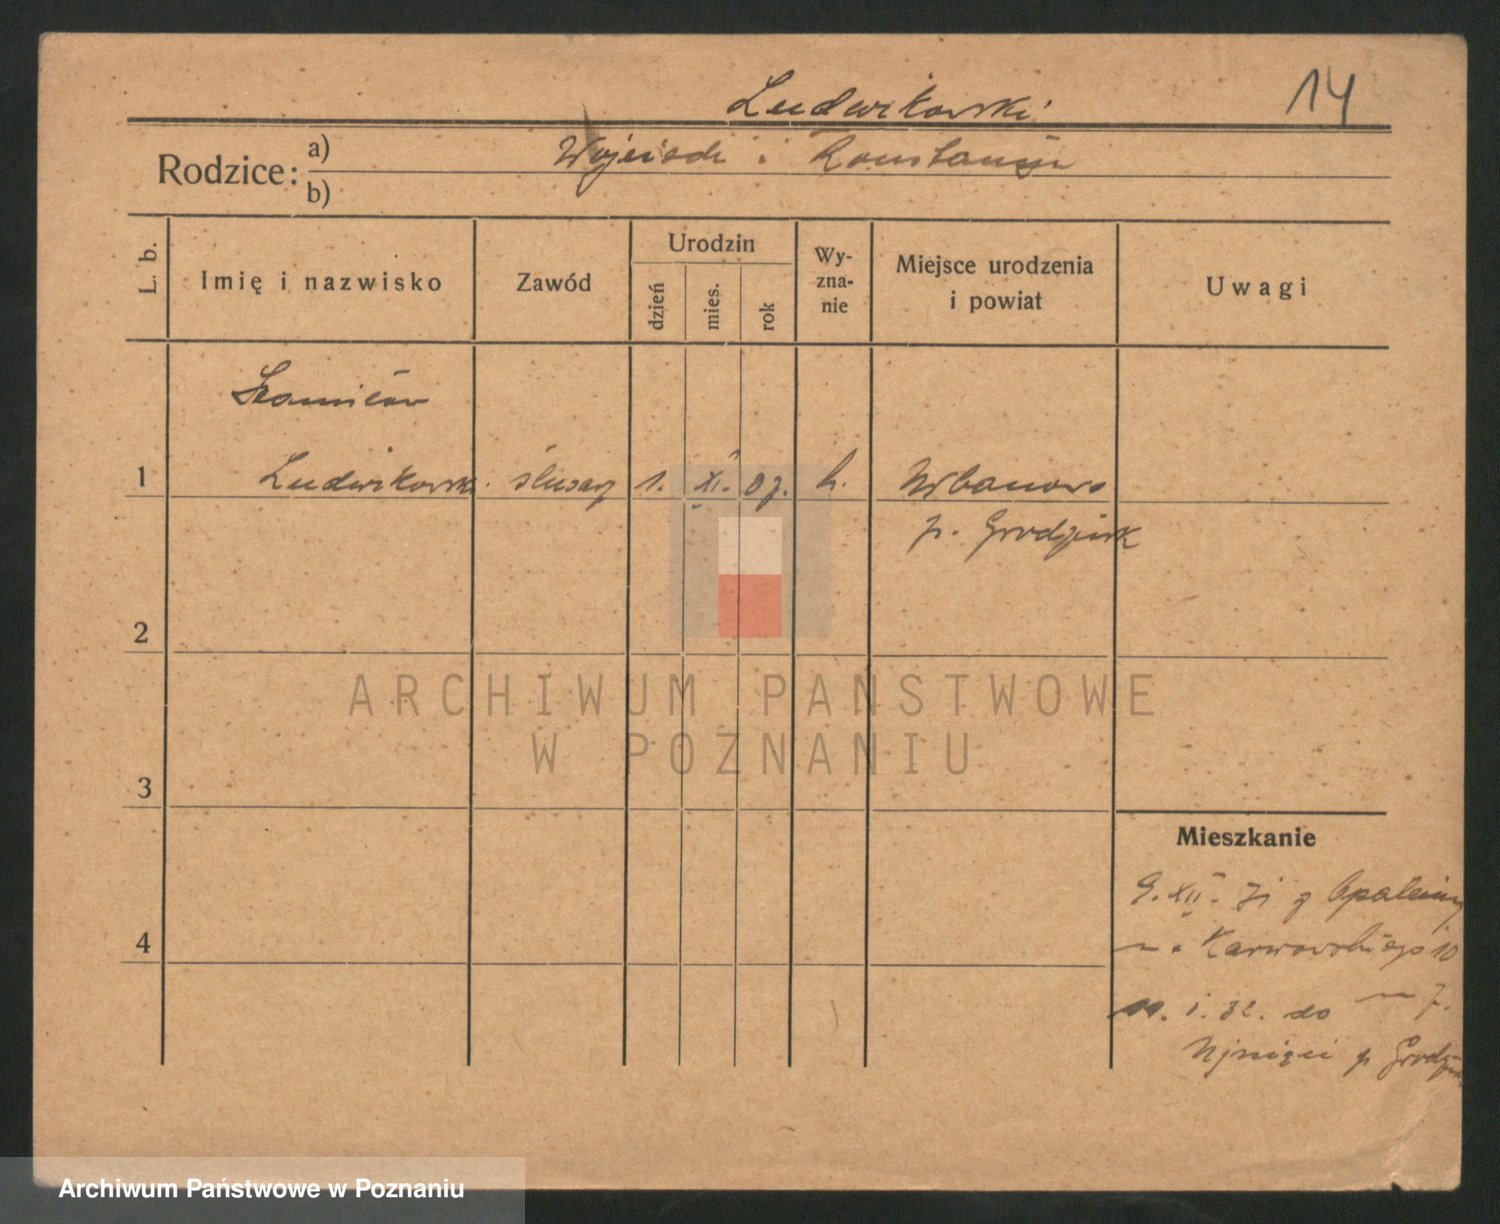 Ludwikowski
14
Rodzice: a) Wojciech i Konstancja
b)
L. b.
Imię i nazwisko
Zawód
Urodzin
dzień
mies.
rok
Wy-
zna-
nie
Miejsce urodzenia
i powiat
Uwagi
Stanisław
1 Ludwikowski ślusarz 1. XI. 07. k. Urbanowo
p. Grodzisk
2
3
4
Mieszkanie
9. XII. 31 z Opalenicy
Karwowskiego 10
I. 32. do
p. Grodzisk
ARCHIWUM PAŃSTWOWE
W POZNANIU
Archiwum Państwowe w Poznaniu